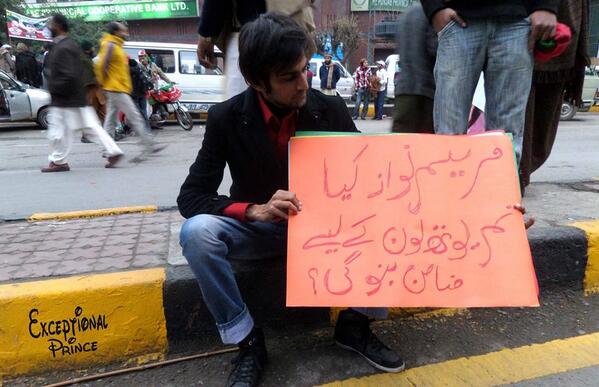 COOPERATIVE BANK LTD.
مریم نواز کیا
تم یوتھ لون کے لیے
ضامن بنو گی؟
EXCEPTIONAL
PRINCE